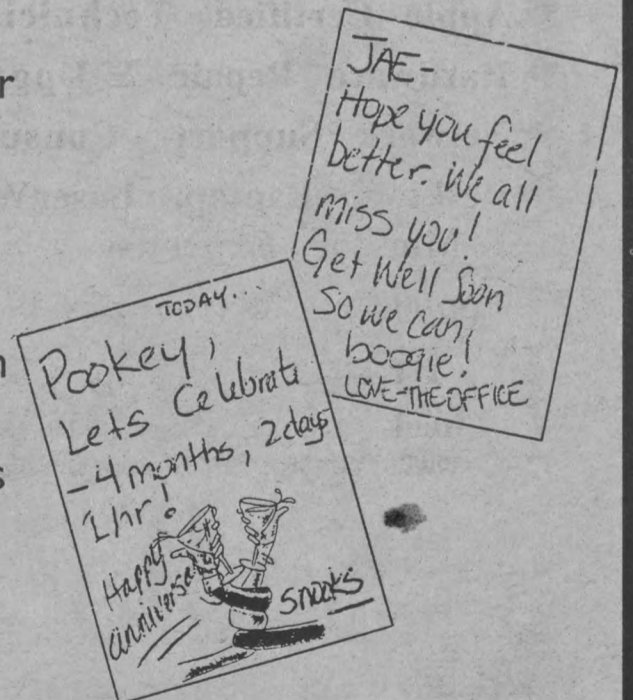 JAE-
Hope you feel
better. We all
miss you!
Get Well Soon
So we can
boogie!
LOVE-THE OFFICE
TODAY...
Pookey,
Lets Celebrate
-4 months, 2 days
1 hr!
Happy
anniversary
snooks